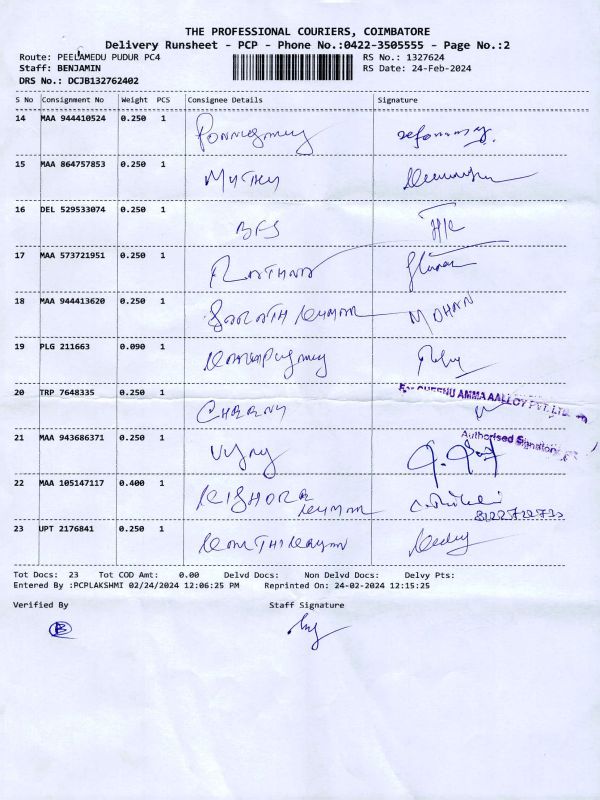 THE PROFESSIONAL COURIERS, COIMBATORE
Delivery Runsheet - PCP - Phone No.:0422-3505555 - Page No.:2
Route: PEELAMEDU PUDUR PC4 RS No.: 1327624
Staff: BENJAMIN RS Date: 24-Feb-2024
DRS No.: DCJB132762402
S No Consignment No Weight PCS Consignee Details Signature
14 MAA 944410524 0.250 1
15 MAA 864757853 0.250 1 Muthu
16 DEL 529533074 0.250 1 BFS
17 MAA 573721951 0.250 1 Rathna
18 MAA 944413620 0.250 1 Sarath Kumar MOHAN
19 PLG 211663 0.090 1
20 TRP 7648335 0.250 1 Cherry
For CHEENU AMMA AALLOY PVT. LTD.
Authorised Signatory
21 MAA 943686371 0.250 1 Vijay
22 MAA 105147117 0.400 1 Kishore Kumar
23 UPT 2176841 0.250 1
Tot Docs: 23 Tot COD Amt: 0.00 Delvd Docs: Non Delvd Docs: Delvy Pts:
Entered By :PCPLAKSHMI 02/24/2024 12:06:25 PM Reprinted On: 24-02-2024 12:15:25
Verified By Staff Signature
B